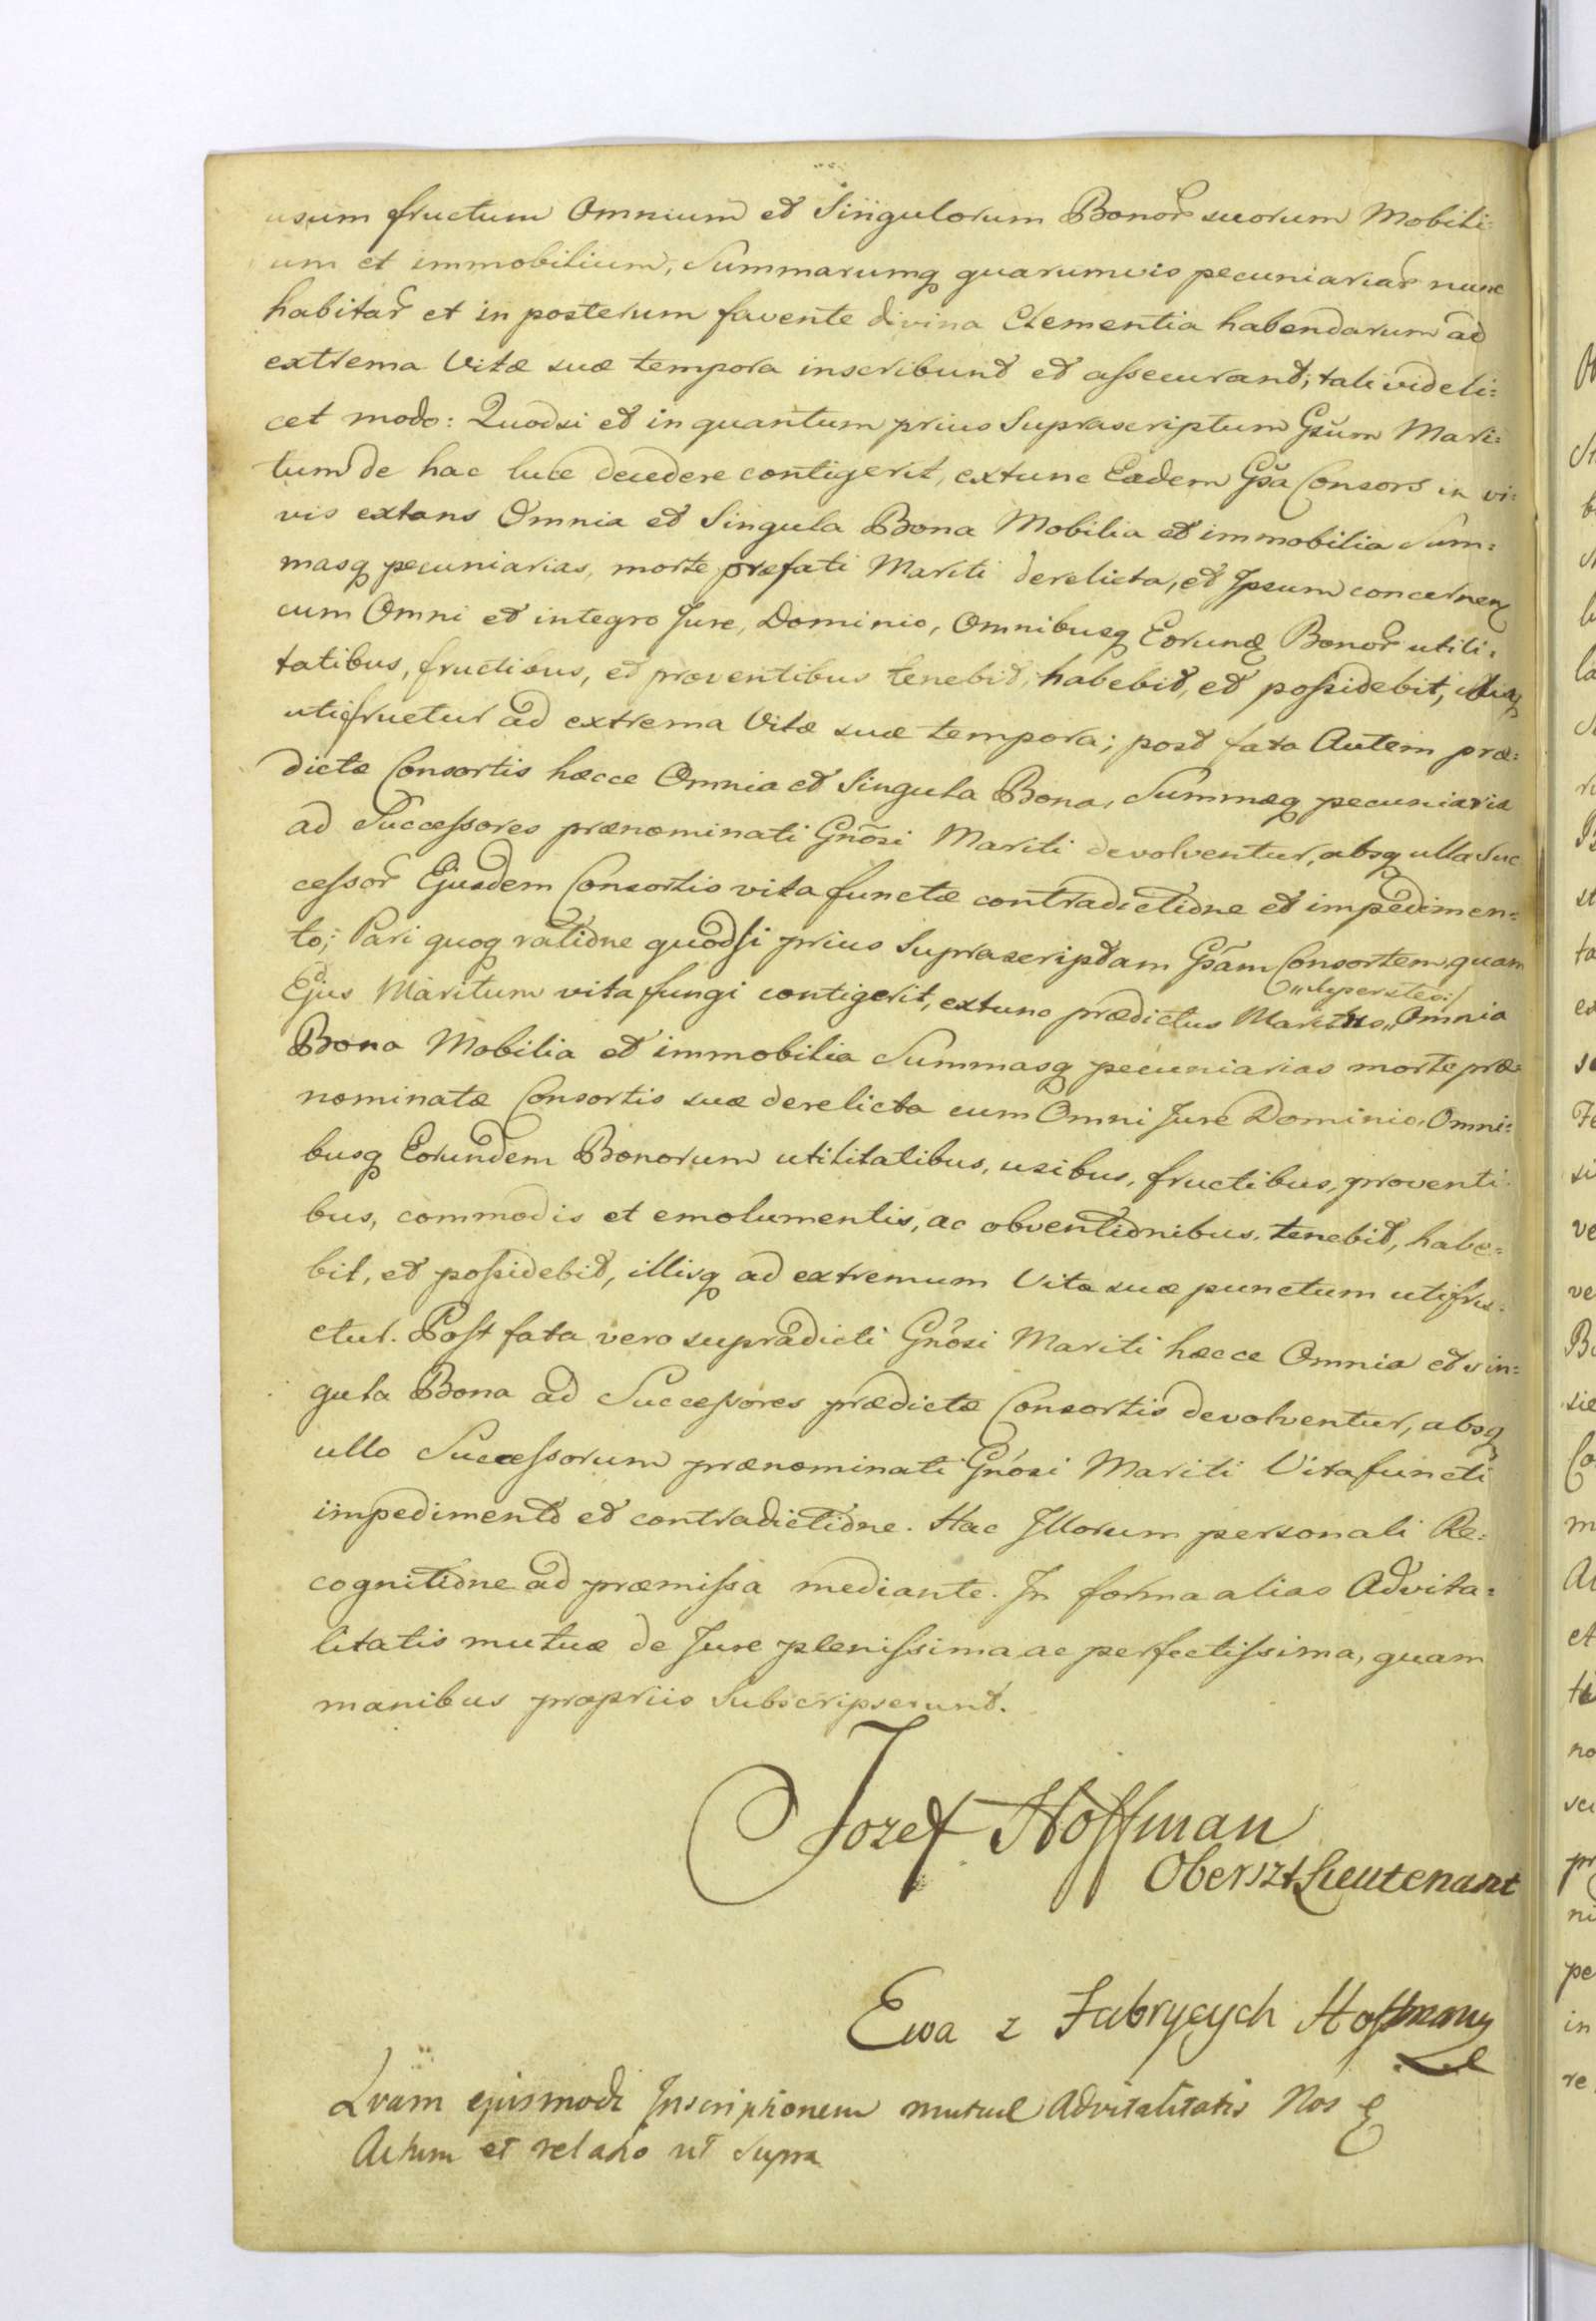 usum fructum Omnium et Singulorum Bonor̃ suorum Mobili=
um et immobilium, Summarumq quarumvis pecuniariar̃ nunc
habitar̃ et in posterum favente divina Clementia habendarum ad
extrema Vitæ suæ tempora inscribunt et aſsecurant; tali videli=
cet modo: Quodsi et in quantum prius Suprascriptum Gsũm Mari=
tum de hac luce decedere contigerit, extunc Eadem Gsã Consors in vi=
vis extans Omnia et Singula Bona Mobilia et immobilia Sum=
masq pecuniarias, morte præfati Mariti derelicta, et Ipsum concernen
cum Omni et integro Jure, Dominio, Omnibusq Eorund Bonor̃ utili=
tatibus, fructibus, et proventibus tenebit, habebit, et poſsidebit, illisq
utifruetur ad extrema Vitæ suæ tempora; post fata Autem præ=
dictæ Consortis hæcce Omnia et Singula Bona, Summæq pecuniariæ
ad Succeſsores prænominati Gñosi Mariti devolventur, absq ulla Suc
ceſsor̃ Ejusdem Consortis vita functæ contradictione et impedimen=
to; Pari quoq ratione quodſi prius Suprascriptam Gsãm Consortem, quam
Ejus Maritum vita fungi contigerit, extunc prædictus Maritus „ Omnia
„superstes/
Bona Mobilia et immobilia Summasq pecuniarias morte præ=
nominatæ Consortis suæ derelicta cum Omni Jure Dominio, Omni=
busq Eorundem Bonorum utilitatibus, usibus, fructibus, proventi=
bus, commodis et emolumentis, ac obventionibus, tenebit, habe=
bit, et poſsidebit, illisq ad extremum Vitæ suæ punctum utifru=
etur. Poſt fata vero supradicti Gñosi Mariti hæcce Omnia et sin=
gula Bona ad Succeſsores prædictæ Consortis devolventur, absq
ullo Succeſsorum prænominati Gñosi Mariti Vita functi
impedimento et contradictione. Hac Illorum personali Re=
cognitione ad præmiſsa mediante. In forma alias Advita=
litatis mutuæ de Jure pleniſsima ac perfectiſsima, quam
manibus propriis Subscripserunt.
Jozef Hoffman
Oberszt Lieutenant
Ewa z Fabrycych Hoffmany
Qvam ejusmodi Inscriptionem mutuæ Advitalitatis Nos
Actum et relatio ut Supra